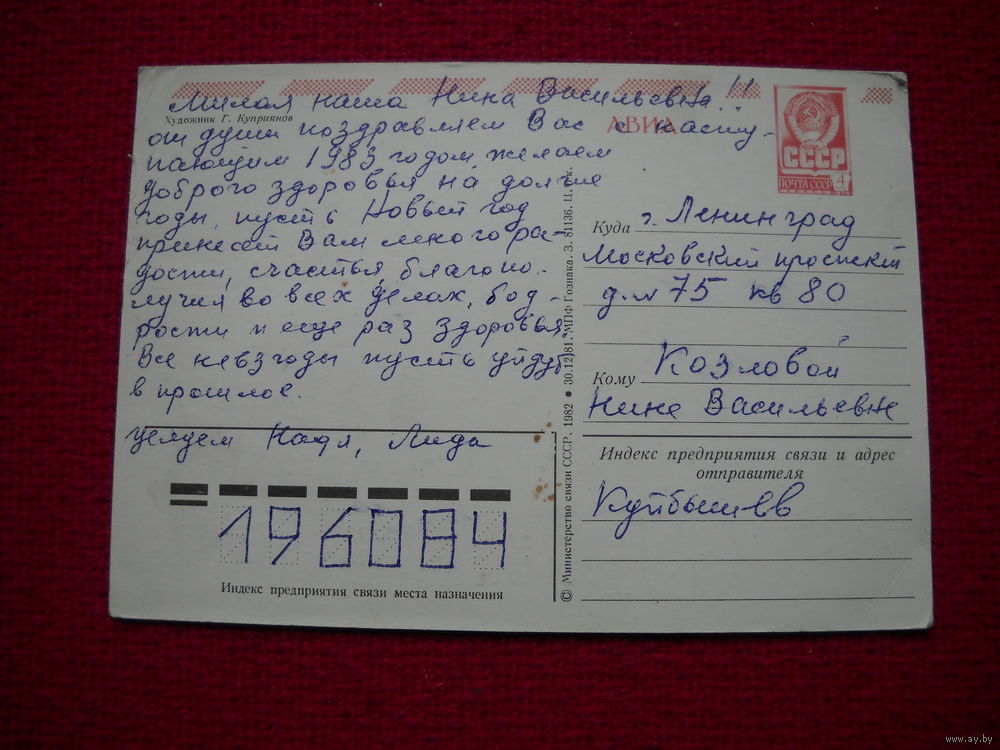 Милая наша Нина Васильевна!!
Художник Г. Куприянов
от души поздравляем Вас с насту-
пающим 1983 годом, желаем
доброго здоровья на долгие
годы, пусть Новый год
принесет Вам много ра-
дости, счастья, благопо-
лучия во всех делах, бод-
рости и еще раз здоровья.
Все невзгоды пусть уйдут
в прошлое.
целуем Надя, Лида
196084
Индекс предприятия связи места назначения
© Министерство связи СССР. 1982 • 30.12.81. МПФ Гознака. З. 81136. Ц. к.
АВИА
СССР
ПОЧТА СССР 4
Куда г. Ленинград
Московский проспект
д. № 75 кв 80
Кому Козловой
Нине Васильевне
Индекс предприятия связи и адрес
отправителя
Куйбышев
www.ay.by